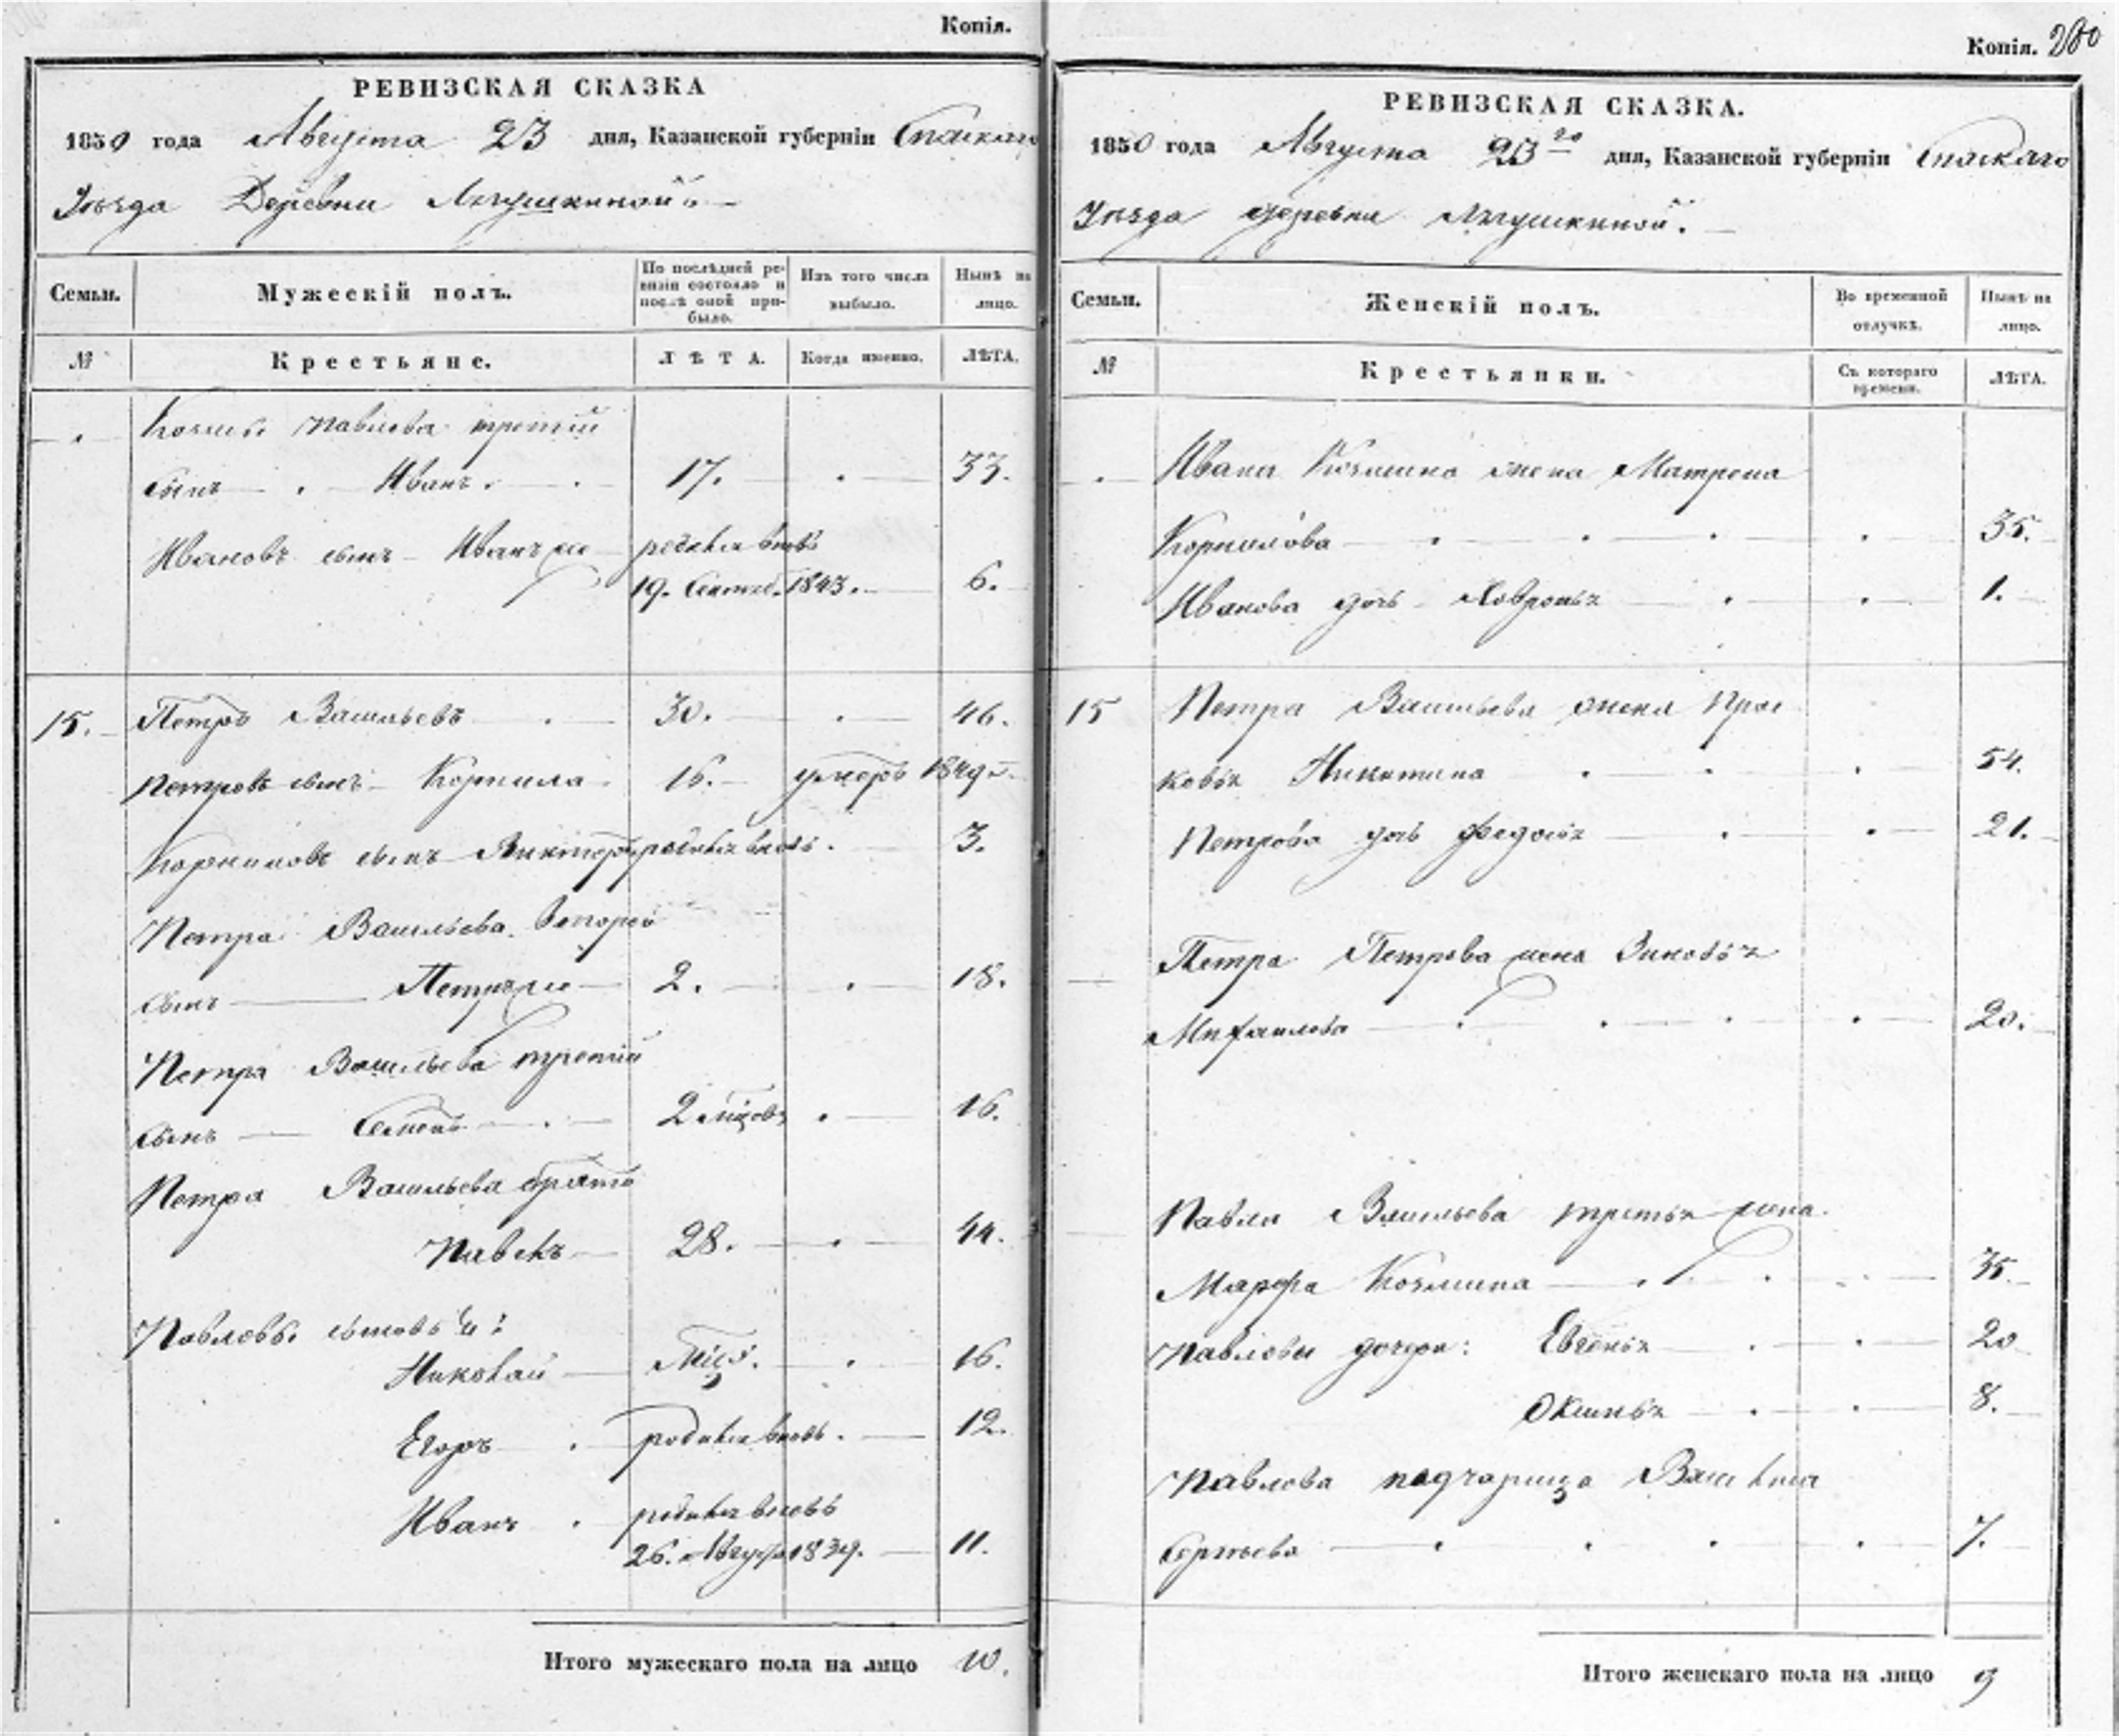 Копія.
РЕВИЗСКАЯ СКАЗКА
1850 года Августа 23 дня, Казанской губерніи Спаскаго
Уѣзда Деревни Лягушкиной.
Семьи. Мужескій полъ. По послѣдней ревизіи состояло и послѣ оной прибыло. Изъ того числа выбыло. Нынѣ на лицо.
№ Крестьяне. ЛѢТА. Когда именно. ЛѢТА.
Козьмы Павлова третій
сынъ Иванъ. 17. 33.
Ивановъ сынъ Иванъ же родился вновь
19. Сентяб. 1843. 6.
15. Петръ Васильевъ 30. 46.
Петровъ сынъ Корнила 16. умеръ 1849 г.
Корниловъ сынъ Виктор родился вновь. 3.
Петра Васильева второй
сынъ Петръ же 2. 18.
Петра Васильева третий
сынъ Семенъ 2 мѣсяцов 16.
Петра Васильева братъ
Павелъ 28. 44.
Павловы сыновья:
Николай 16.
Егоръ родился вновь. 12.
Иванъ родился вновь
26. Августа 1839. 11.
Итого мужескаго пола на лицо 10.
Копія. 280
РЕВИЗСКАЯ СКАЗКА.
1850 года Августа 23го дня, Казанской губерніи Спаскаго
Уѣзда деревни Лягушкиной.
Семьи. Женскій полъ. Во временной отлучкѣ. Нынѣ на лицо.
№ Крестьянки. Съ котораго времени. ЛѢТА.
Ивана Козмина жена Матрена
Корнилова 35.
Иванова дочь Ховронья 1.
15 Петра Васильева жена Прос
ковья Никитина 54.
Петрова дочь Федосья 21.
Петра Петрова жена Зиновья
Михайлова 20.
Павла Васильева третья жена
Марфа Козмина 35.
Павловы дочери: Евгенья 20
Оксинья 8.
Павлова падчерица Василиса
Сергѣева 7.
Итого женскаго пола на лицо 9